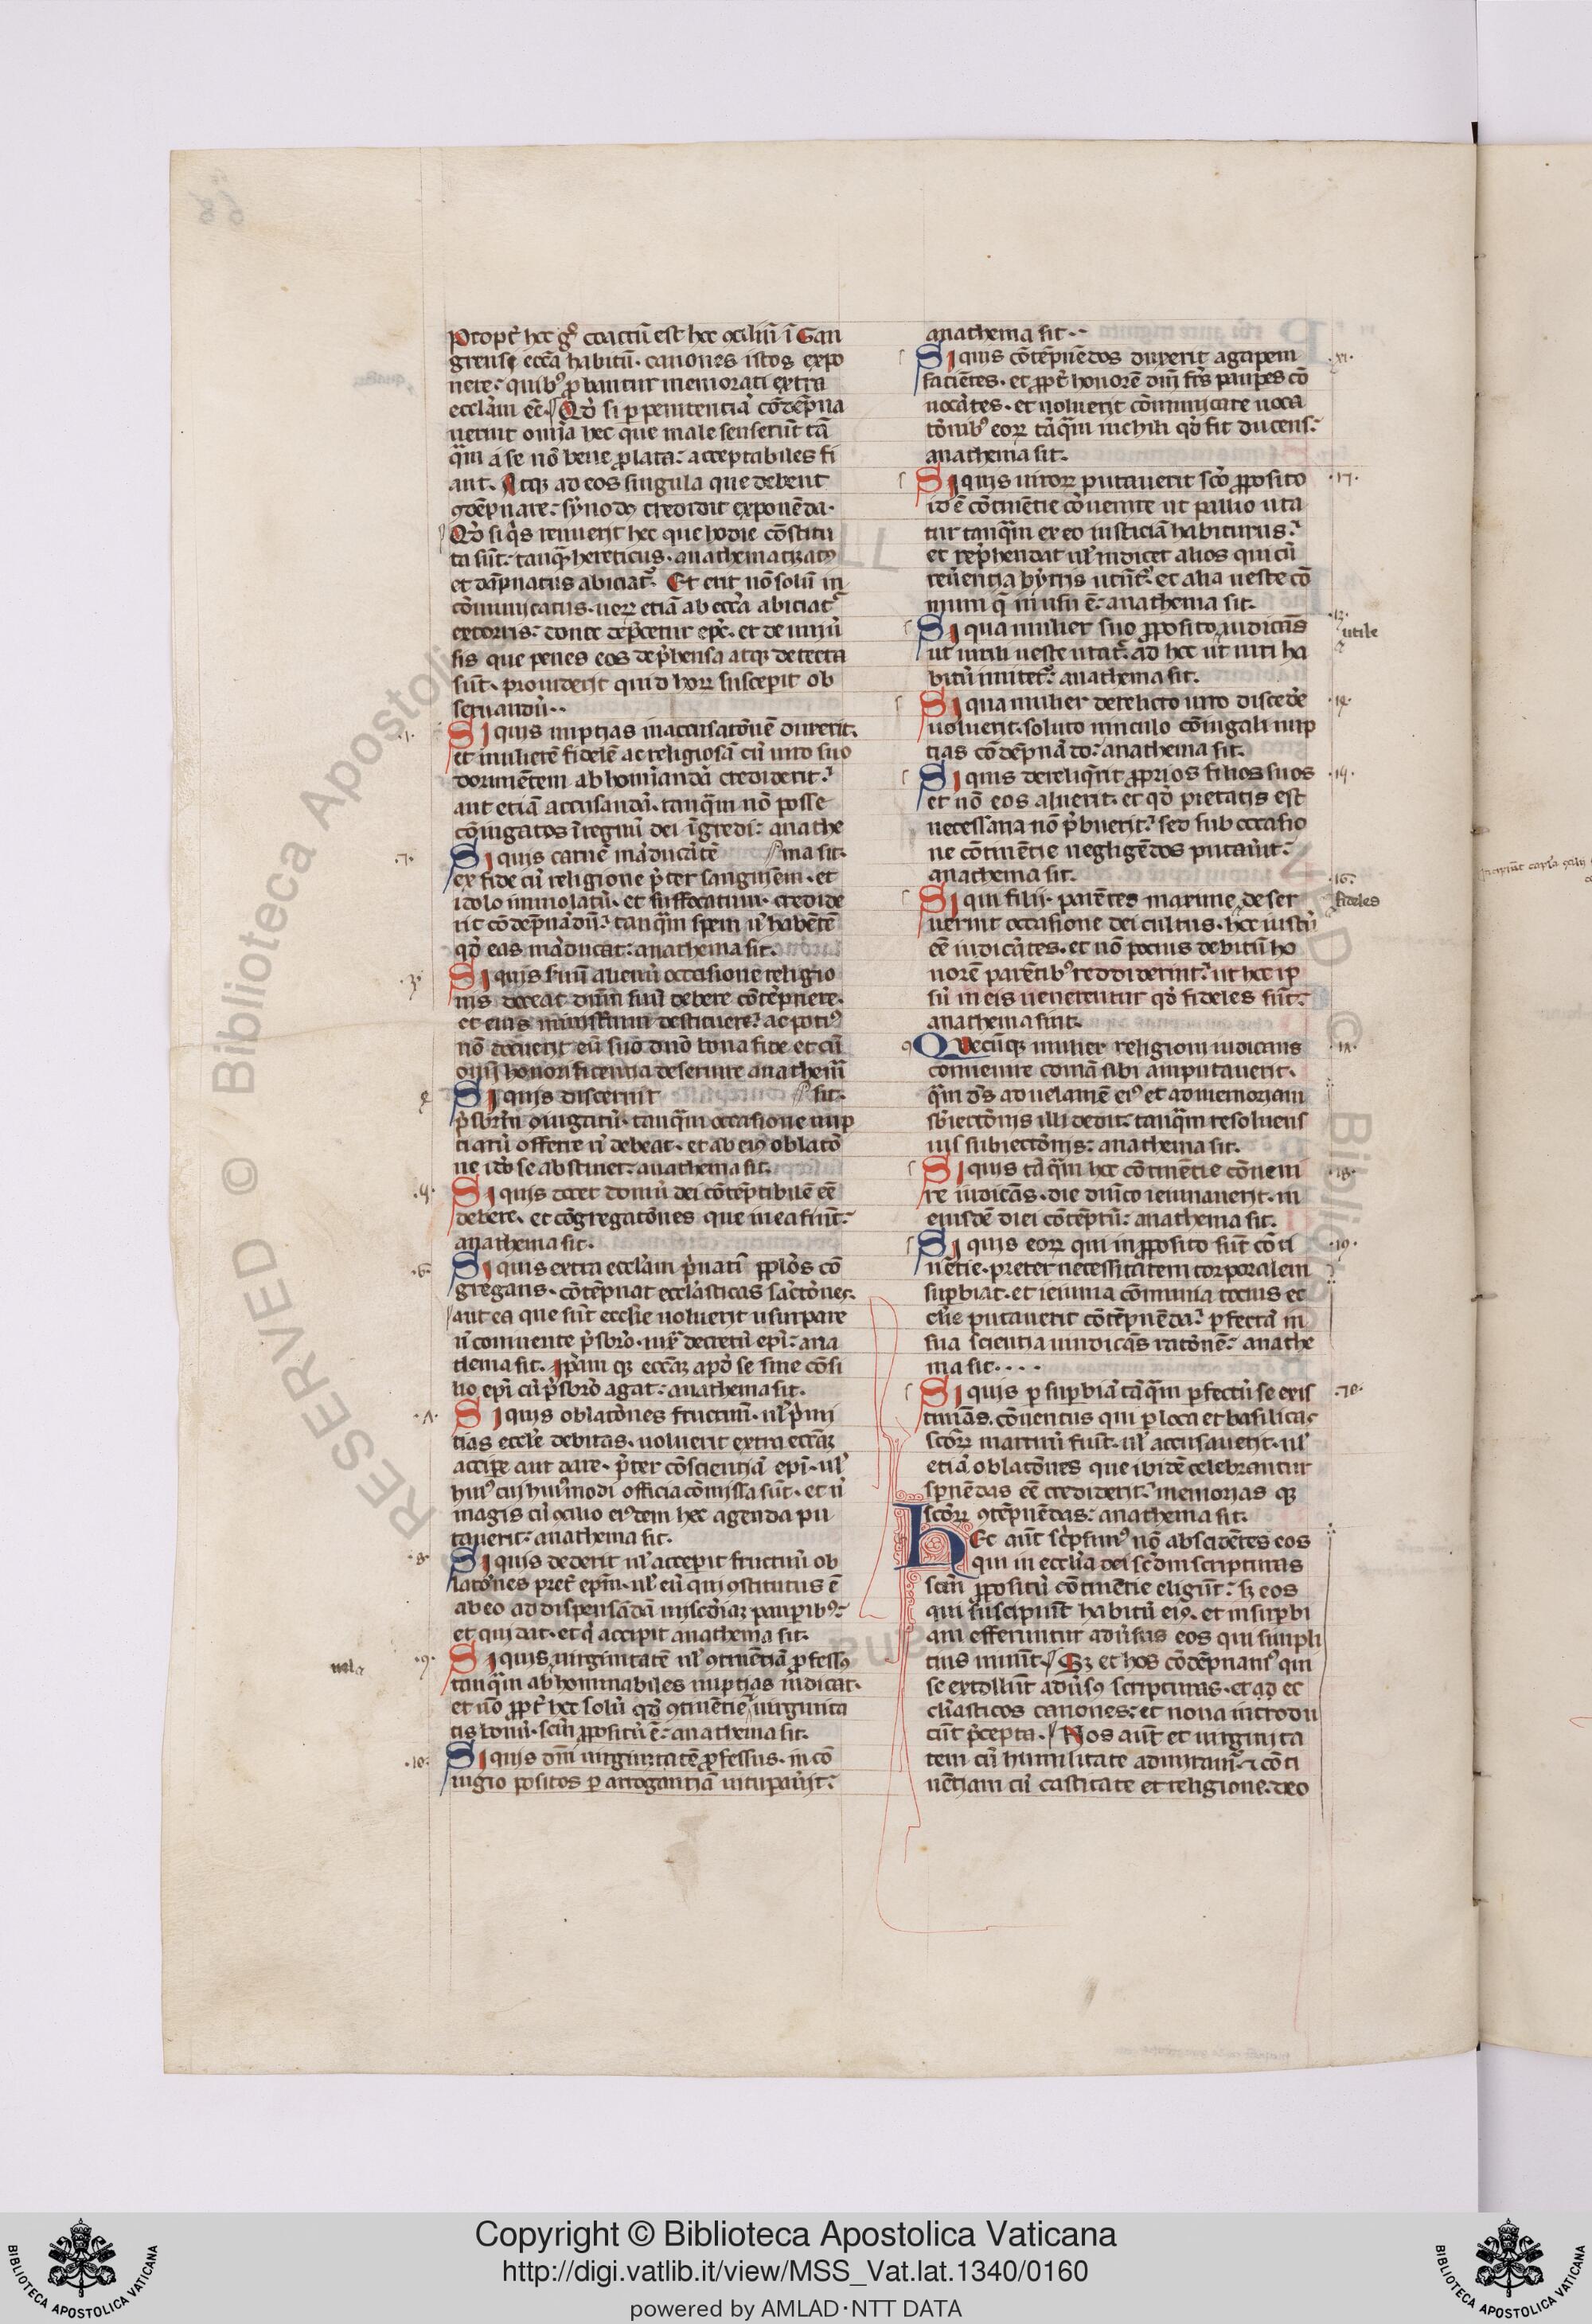 Propt̄ hec g͛ coactū est hec ɔciliū ī Gan
grensi eccƚa habitū. canones istos expo
nere: quibꝰ ꝓbantur memorati extra
eccƚam eē. Qđ si ꝑ penitentiā cōdēpna
uerint omīa hec que male senserūt tā
qͣm a se nō bene ꝓlata: acceptabiles fi
ant. Atqꝫ ad eos singula que debent
ɔdēpnare: synodꝰ credidit exponēda.
Qđ si qͥs renuerit hec que hodie cōstitu
ta sūt: tanqͣꝫ hereticus. anathematizatꝰ
et dāpnatus abiciat᷑. Et erit nō solū in
cōmunicatus. ueꝝ etiā ab eccƚa abiciat᷑
extorris: donec dep̄cetur ep̄c. et de uniū
sis que penes eos dep̄hensa atqꝫ detecta
sūt. prouiderit quid hoꝝ suscepit ob
seruandū..
.1. Si quis nuptias in accusatōnē duxerit.
et mulierē fidelē ac religiosā cū uiro suo
dormiētem abhomīandā crediderit:
aut etiā accusandā. tanqͣm nō posse
cōiugatos ī regnū dei īgredi: anathe
.2. Si quis carnē māducātē ma sit.
ex fide cū religione p̄ter sanguinem. et
idolo immolatū. et suffocatum. credide
rit cōdēpnādū: tanqͣm spem n̄ habētē
qđ eas māducat: anathema sit.
.3. Si quis suū alienū occasione religio
nis doceat dn̄m suū debere cōtēpnere.
et eius ministerium destituere: ac potiꝰ
nō docuerit eū suo dn̄o bona fide et cū
om̄i honorificentia deseruire anathem̄
4 Si quis discernit sit.
p̄sbrm̄ ɔiugatū. tanqͣm occasione nup
tiarū offerre n̄ debeat. et ab eiꝰ oblatō
ne iđo se abstinet: anathema sit.
.5. Si quis docet domū dei cōtēptibilē eē
debere. et cōgregatōnes que in ea fiūt:
anathema sit.
.6. Si quis extra eccƚam p̄uatī pplōs cō
gregans. cōtēpnat eccƚasticas sāctōnes.
aut ea que sūt eccƚie uoluerit usurpare
n̄ conuente p̄sbrō. iuxͣ decretū epī: ana
thema sit.
lio epī cū p̄sbrō agat: anathema sit.
.7. Si quis oblatōnes fructuū. uƚ p̄mi
tias eccƚie debitas. uoluerit extra eccƚaꝫ
accipe aut dare. p̄ter cōscientiā epī. uƚ
huiꝰ cui huiꝰmodi officia cōmissa sūt. et n̄
magis cū ɔcilio eiꝰdem hec agenda pu
tauerit: anathema sit.
.8. Si quis dederit uƚ acceperit fructuū ob
latōnes pret̄ epm̄. uƚ eū qui ɔstitutus ē
ab eo ad dispensādā mīscōiaꝫ pauꝑibꝰ:
et qui dat. et qͥ accipit anathema sit.
uela .9. Si quis uirginitatē uƚ ɔtinētiā ꝓfessꝰ
tanqͣm abhominabiles nuptias iudicat.
et nō ꝓpt̄ hec solū qđ ɔtinētie uirginita
tis bonū. scm̄ ꝓpositū ē: anathema sit.
.10. Si quis dn̄i uirginitatē ꝓfessus. in cō
iugio positos ꝑ arrogantiā uituꝑaūit:
anathema sit..
Si quis cōtēpnēdos duxerit agapem .xi.
faciētes. et ꝓpt̄ honorē dn̄i fr̄s pauꝑes cō
uocātes. et noluerit cōmunicare uoca
tōnibꝰ eoꝝ tāqͣm nichili qđ fit ducens:
anathema sit.
Si quis uiroꝝ putauerit scō ꝓposito .12.
id ē cōtinētie cōuenire ut pallio uta
tur tanqͣm ex eo iusticiā habiturus:
et rep̄hendat uƚ iudicet alios qui cū
reūentia byrris utūt᷑. et alia ueste cō
muni q̄ in usu ē: anathema sit.
Si qua mulier suo ꝓposito iudicās .13. utile
ut uirili ueste utat᷑. ad hec ut uiri ha
bitū imitet᷑: anathema sit.
Si qua mulier derelicto uiro discedē .14.
uoluerit. soluto uinculo cōiugali nup
tias cōdēpnādo: anathema sit.
Si quis dereliqͥrit ꝓprios filios suos .15.
et nō eos aluerit. et qđ pietatis est
necessaria nō p̄buerit: sed sub occasio
ne cōtinētie negligēdos putaūit:
anathema sit. .16.
Si qui filii. parētes maxime deser fideles
uerint occasione dei cultus. hec iustū
eē iudicātes. et nō pocius debitū ho
norē parētibꝰ reddiderint: ut hec ip̄
sū in eis uenerentur qđ fideles sūt:
anathema sint.
Quecūqꝫ mulier religioni iudicans .17.
conuenire comā sibi amputauerit.
qͣm d̄s ad uelamē eiꝰ et ad memoriam
sb̄iectōnis illi dedit: tanqͣm resoluens
ius subiectōnis: anathema sit.
Si quis tāqͣm hec cōtinētie cōueni .18.
re iudicās. die dn̄ico ieiunauerit. in
eiusdē diei cōtēptū: anathema sit.
Si quis eoꝝ qui in ꝓposito sūt cōti .19.
nētie. preter necessitatem corporalem
suꝑbiat. et ieiunia cōmunia tocius ec
cƚie putauerit cōtēpnēda: ꝑfectā in
sua scientia uindicās ratōnē: anathe
ma sit....
Si quis ꝑ suꝑbiā tāqͣm ꝑfectū se exis .20.
timās. cōuentus qui ꝑ loca et basilicas
scōꝝ martirū fiūt. uƚ accusauerit. uƚ
etiā oblatōnes que ibidē celebrantur
spnēdas eē crediderit: memorias qꝫ
scōꝝ ɔtēpnēdas: anathema sit.
Hec aūt sc̄psimꝰ nō abscidētes eos
qui in eccƚia dei scđm scripturas
scm̄ ꝓpositū cōtinētie eligūt: sꝫ eos
qui suscipiūt habitū eiꝰ. et in suꝑbi
am efferuntur adūsus eos qui simpli
cius uiuūt. Sꝫ et hos cōdēpnamꝰ qui
se extollūt adūsꝰ scripturas. et ad ec
cƚiasticos canones: et noua introdu
cūt p̄cepta. Nos aūt et uirginita
tem cū humilitate admiram᷑. ⁊ cōti
nētiam cū castitate et religione. deo
Copyright © Biblioteca Apostolica Vaticana
http://digi.vatlib.it/view/MSS_Vat.lat.1340/0160
powered by AMLAD·NTT DATA
BIBLIOTECA APOSTOLICA VATICANA
BIBLIOTECA APOSTOLICA VATICANA